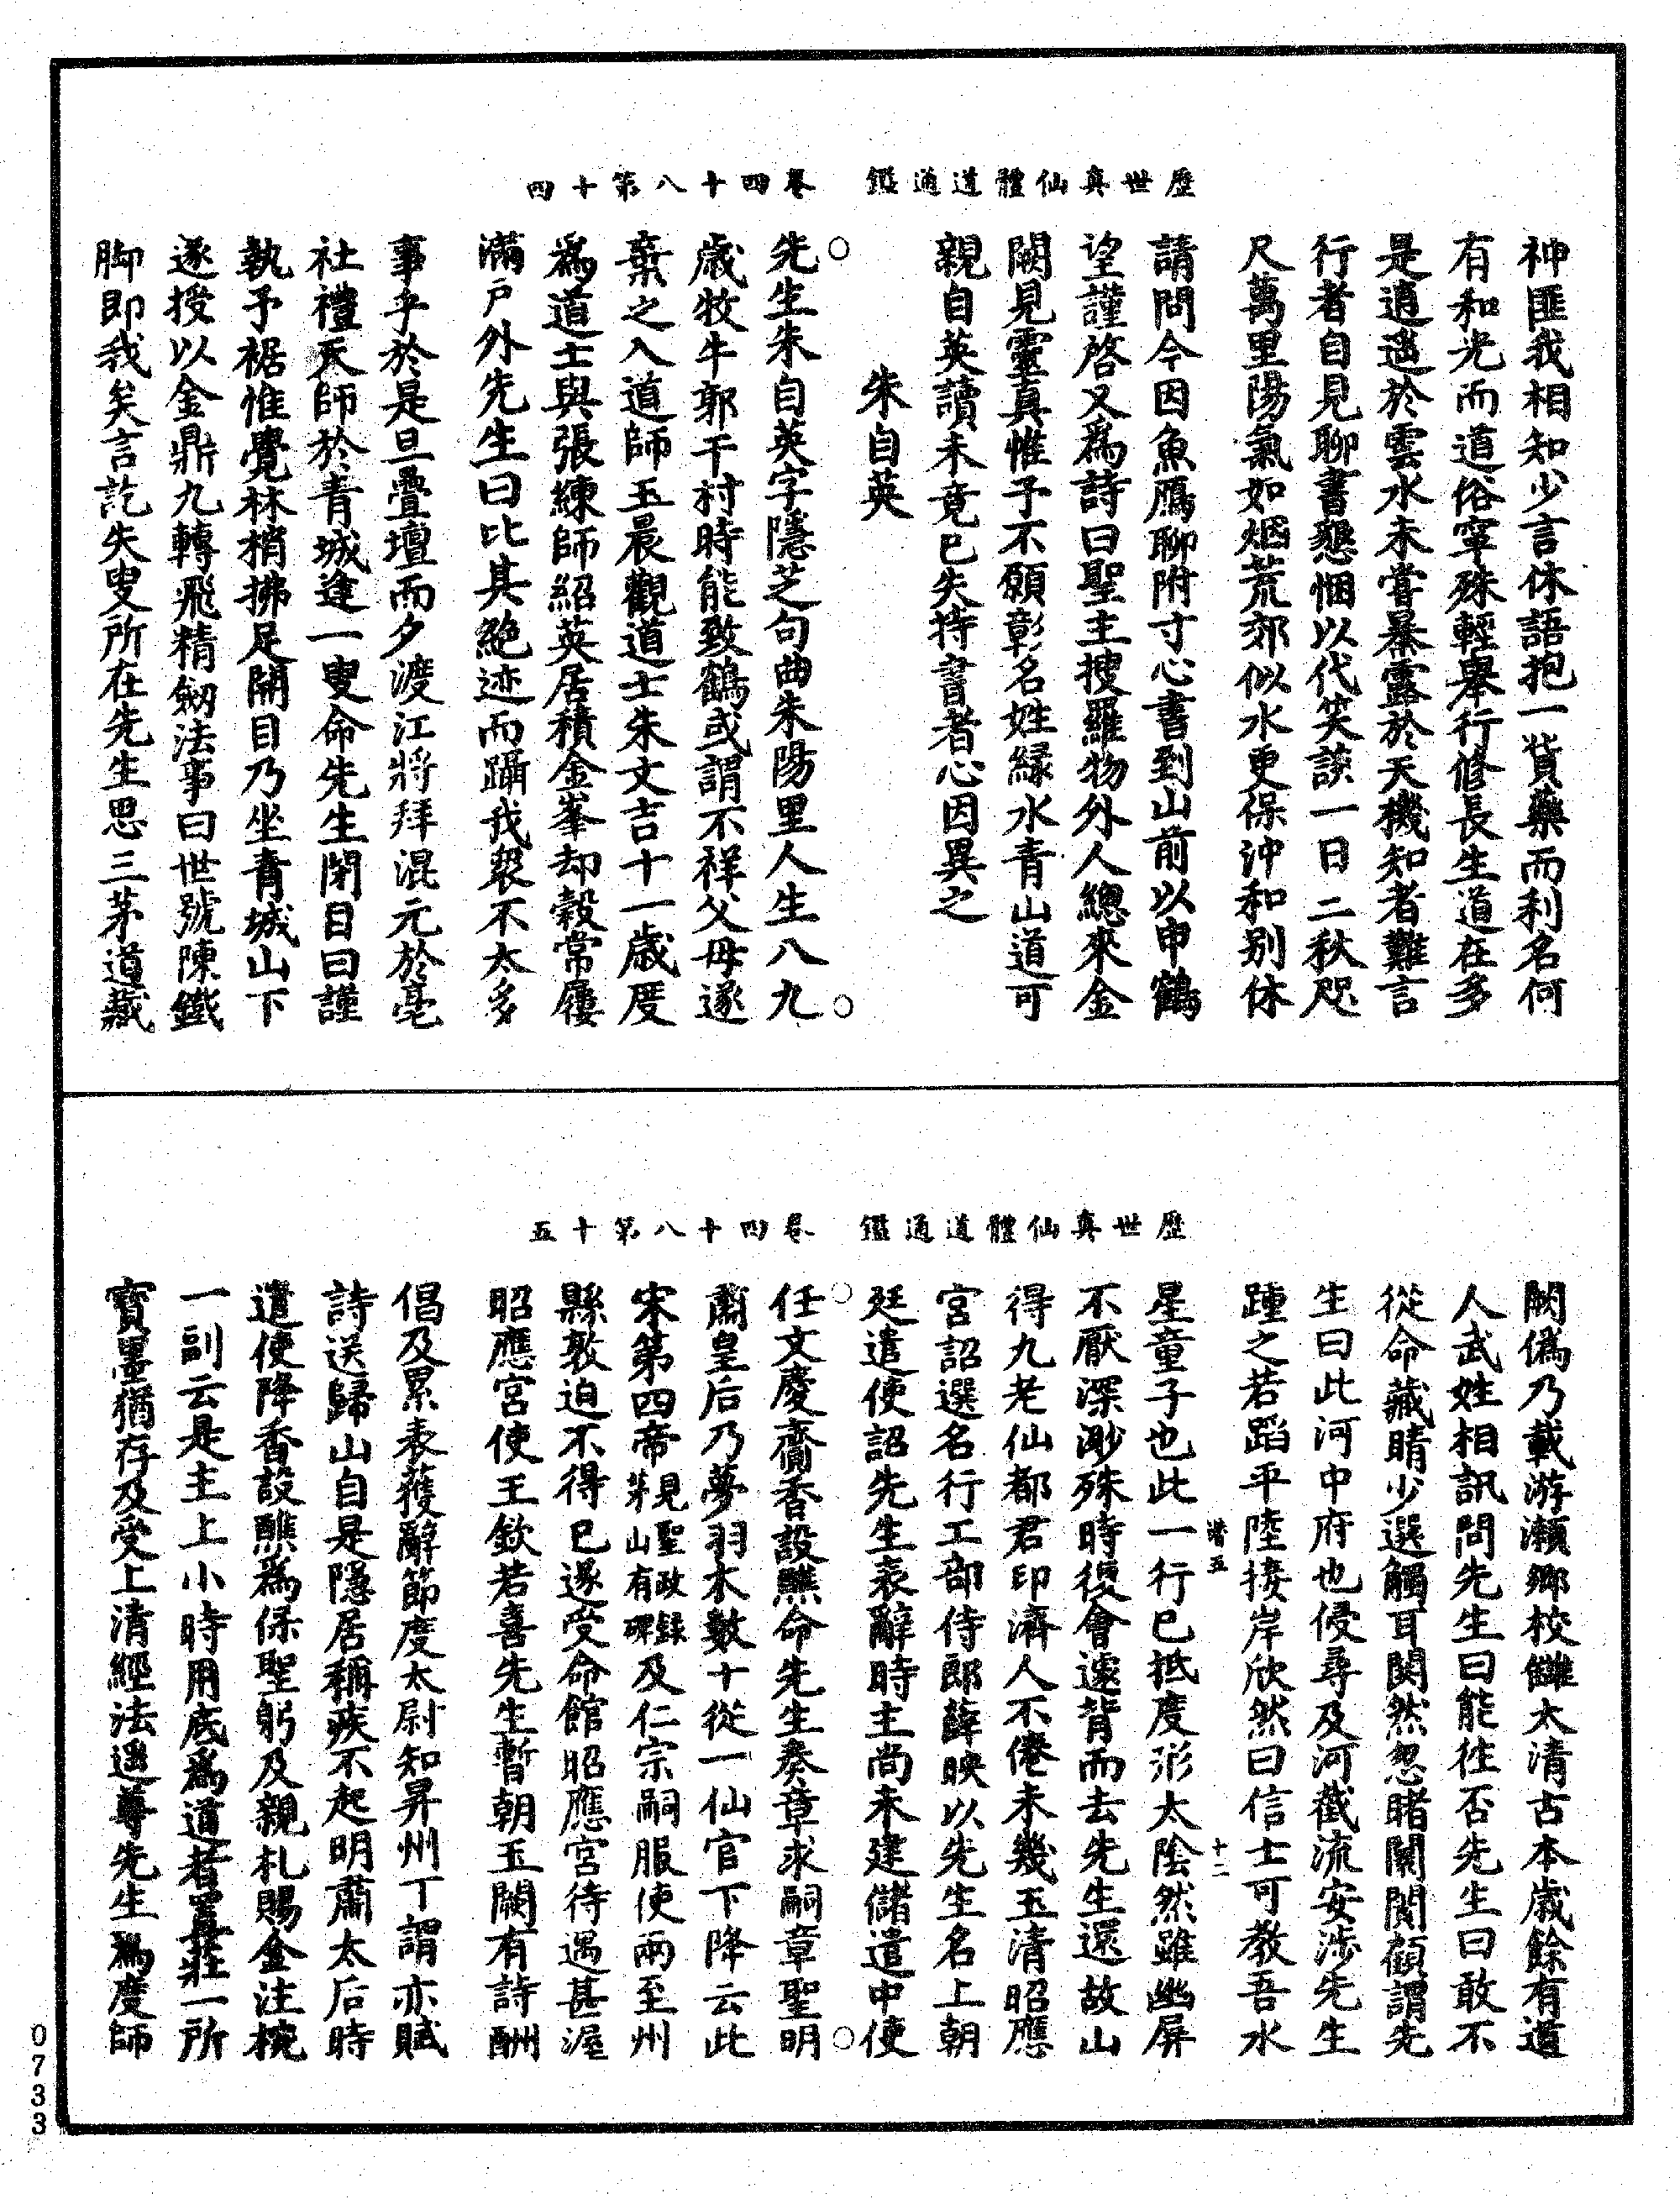 歷世真仙體道通鑑　卷四十八第十四
神匪我相知少言休語抱一貨藥而利名何
有和光而道俗寧殊輕舉行修長生道在多
是逍遙於雲水未嘗暴露於天機知者難言
行者自見聊書懇悃以代笑談一日二秋咫
尺萬里陽氣如烟荒郊似水更保沖和別休
請問今因魚鴈聊附寸心書到山前以申鶴
望謹啓又爲詩曰聖主搜羅物外人總來金
闕見靈真惟予不願彰名姓緑水青山道可
親自英讀未竟已失持書者心因異之
朱自英
先生朱自英字隱芝句曲朱陽里人生八九
歲牧牛郭干村時能致鶴或謂不祥父母遂
棄之入道師玉晨觀道士朱文吉十一歲度
爲道士與張練師紹英居積金峯却穀常屨
滿戶外先生曰比其絶迹而躡我裂不太多
事乎於是旦疊壇而夕渡江將拜混元於亳
社禮天師於青城逢一叟命先生閉目曰謹
執予裾惟覺林梢拂足開目乃坐青城山下
遂授以金鼎九轉飛精劒法事曰世號陳鐵
脚即我矣言訖失叟所在先生思三茅道藏
歷世真仙體道通鑑　卷四十八第十五
闕僞乃載游瀨鄉校讎太清古本歲餘有道
人武姓相訊問先生曰能徃否先生曰敢不
從命藏睛少選觸耳閧然忽睹闤闠顧謂先
生曰此河中府也侵尋及河截流安涉先生
踵之若蹈平陸接岸欣然曰信士可教吾水
星童子也此一行已抵度形太陰然雖幽屏
譜五
十二
不厭深渺殊時復會遽背而去先生還故山
得九老仙都君印濟人不倦未幾玉清昭應
宮詔選名行工部侍郎薛映以先生名上朝
廷遣使詔先生表辭時主尚未建儲遣中使
任文慶齎香設醮命先生奏章求嗣章聖明
肅皇后乃夢羽衣數十從一仙官下降云此
宋第四帝見聖政録茅山有碑及仁宗嗣服使兩至州
縣敦迫不得已遂受命館昭應宮待遇甚渥
昭應宮使王欽若喜先生暫朝玉闕有詩酬
倡及累表獲辭節度太尉知昇州丁謂亦賦
詩送歸山自是隱居稱疾不起明肅太后時
遣使降香設醮爲保聖躬及親札賜金注椀
一副云是主上小時用底爲道者置莊一所
寶墨猶存及受上清經法遥尊先生爲度師
0733